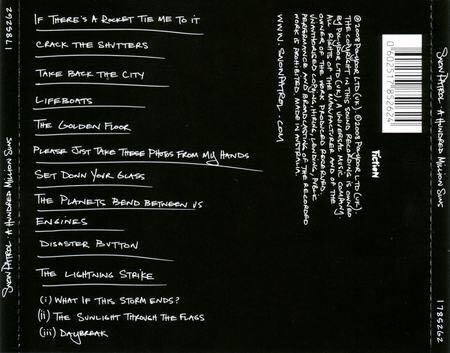 1785262
Snow Patrol · A Hundred Million Suns
If There's A Rocket Tie Me To It
Crack The Shutters
Take Back The City
Lifeboats
The Golden Floor
Please Just Take These Photos From My Hands
Set Down Your Glass
The Planets Bend Between Us
Engines
Disaster Button
The Lightning Strike
(i) What If This Storm Ends?
(ii) The Sunlight Through The Flags
(iii) Daybreak
Fiction
℗2008 Polydor Ltd (UK). ©2008 Polydor Ltd (UK).
The copyright in this sound recording is owned
by Polydor Ltd (UK). A Universal Music Company.
All rights of the manufacturer and of the
owner of the work produced reserved.
Unauthorised copying, hiring, lending, public
performance and broadcasting of the recorded
work prohibited. Made in Australia.
www.snowpatrol.com
0 602517 852624
Snow Patrol · A Hundred Million Suns
1785262